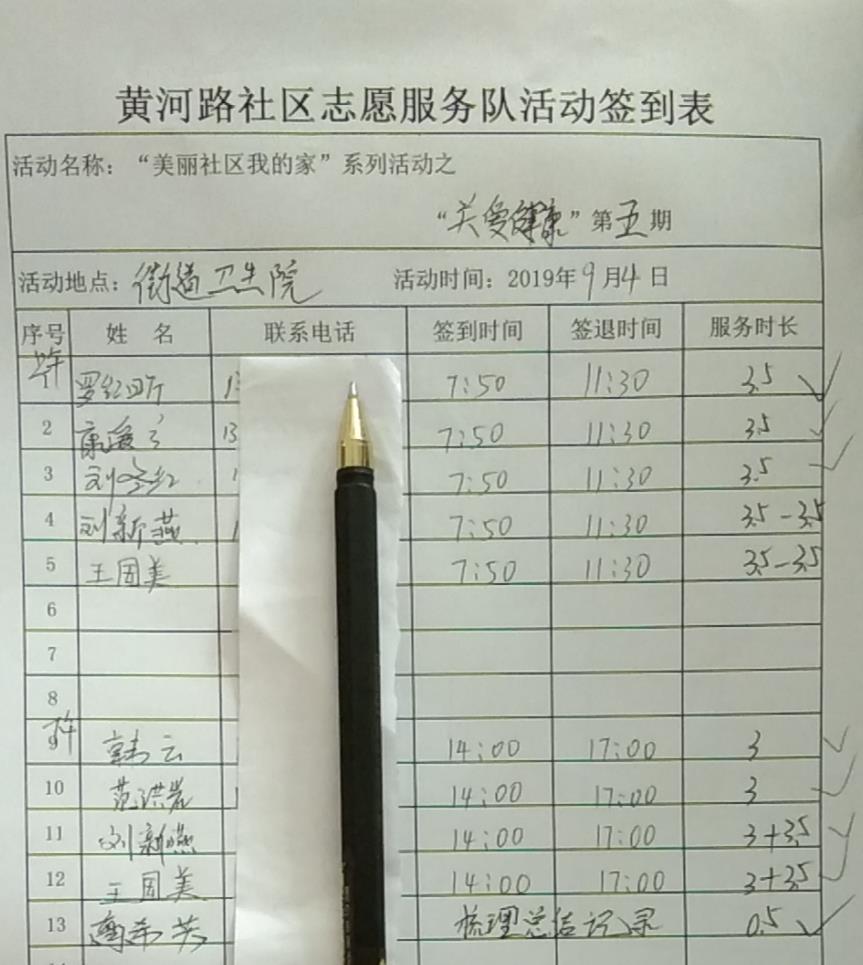 黄河路社区志愿服务队活动签到表
活动名称：“美丽社区我的家”系列活动之
“关爱健康”第五期
活动地点：街道卫生院 活动时间：2019年9月4日
序号 姓名 联系电话 签到时间 签退时间 服务时长
上午
1 7:50 11:30 3.5
2 13 7:50 11:30 3.5
3 刘冬红 7:50 11:30 3.5
4 刘新燕 7:50 11:30 3.5-3.5
5 王国美 7:50 11:30 3.5-3.5
6
7
8
下午
9 韩云 14:00 17:00 3
10 范洪岩 14:00 17:00 3
11 刘新燕 14:00 17:00 3+3.5
12 王国美 14:00 17:00 3+3.5
13 梳理总结记录 0.5